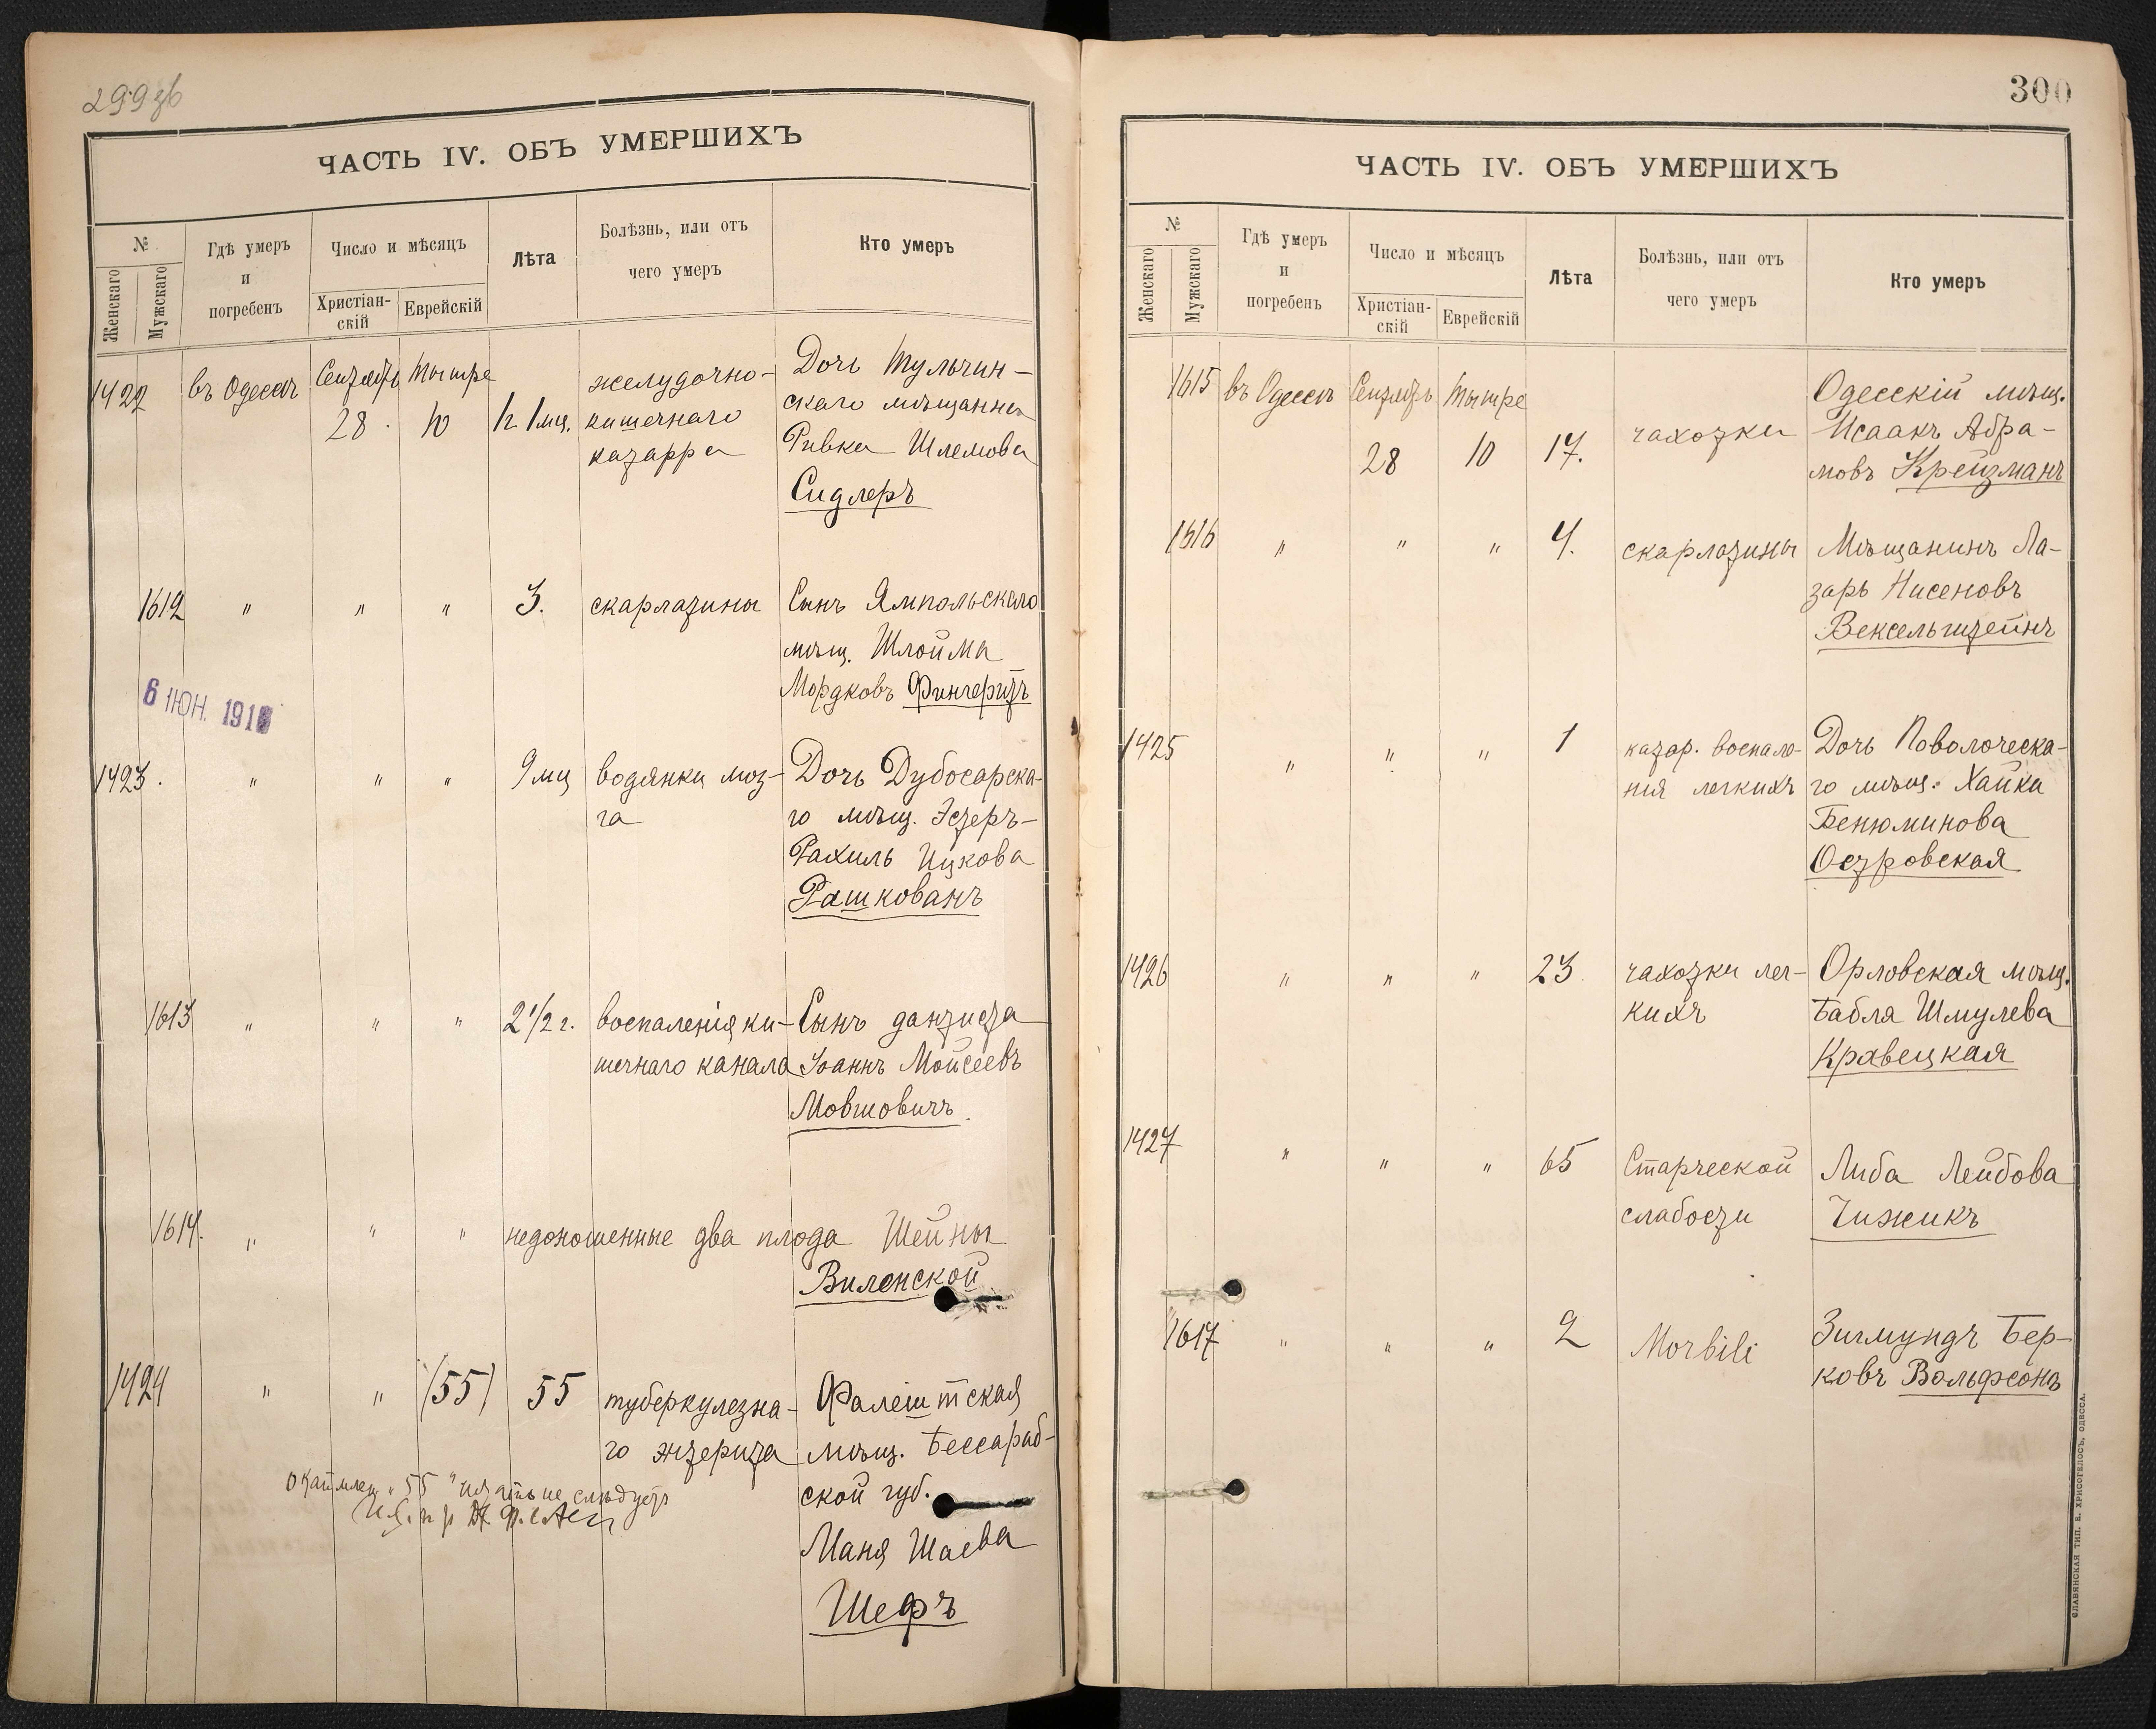 299
ЧАСТЬ IV. ОБЪ УМЕРШИХЪ
№
Женскаго
Мужскаго
Гдѣ умеръ
и
погребенъ
Число и мѣсяцъ
Христіан-
скій
Еврейскій
Лѣта
Болѣзнь, или отъ
чего умеръ
Кто умеръ
1422
въ Одессѣ
Сентябрь
28
Тышре
10
1 мц.
желудочно-
кишечнаго
катарра
Дочь Тульчин-
скаго мѣщанина
Ривка Шлемова
Сидлеръ
1612
"
"
"
3.
скарлатины
Сынъ Ямпольскаго
мѣщ. Шлойма
Мордковъ Финчеритъ
6 ІЮН. 191
1423.
"
"
"
9 мц
водянки моз-
га
Дочь Дубосарска-
го мѣщ. Эстеръ-
Рахиль Ицкова
Рашкованъ
1613
"
"
"
2 1/2 г.
воспаленія ки-
шечнаго канала
Сынъ дантиста
Іоаннъ Мойсеевъ
Мовшовичъ.
1614.
"
"
"
недоношенные два плода Шейны
Виленской
1424
"
"
(55)
55
туберкулезна-
го энтерита
Фалештская
мѣщ. Бессараб-
ской губ.
Маня Шаева
Шефъ
"55" читать не слѣдуетъ
300
ЧАСТЬ IV. ОБЪ УМЕРШИХЪ
№
Женскаго
Мужскаго
Гдѣ умеръ
и
погребенъ
Число и мѣсяцъ
Христіан-
скій
Еврейскій
Лѣта
Болѣзнь, или отъ
чего умеръ
Кто умеръ
1615
въ Одессѣ
Сентябрь
28
Тышре
10
17.
чахотки
Одесскій мѣщ.
Исаакъ Абра-
мовъ Крейтманъ
1616
"
"
"
4.
скарлатины
Мѣщанинъ Ла-
зарь Нисеновъ
Вексельштейнъ
1425
"
"
"
1
катар. воспале-
нія легкихъ
Дочь Поволоческа-
го мѣщ. Хайка
Бенюминова
Островская
1426
"
"
"
23
чахотки лег-
кихъ
Орловская мѣщ.
Бабля Шмулева
Кравецкая
1427
"
"
"
65
Старческой
слабости
Либа Лейбова
Чижикъ
1617
"
"
"
2
Morbili
Зигмундъ Бер-
ковъ Вольфсонъ
СЛАВЯНСКАЯ ТИП. Е. ХРИСОГЕЛОСЪ, ОДЕССА.